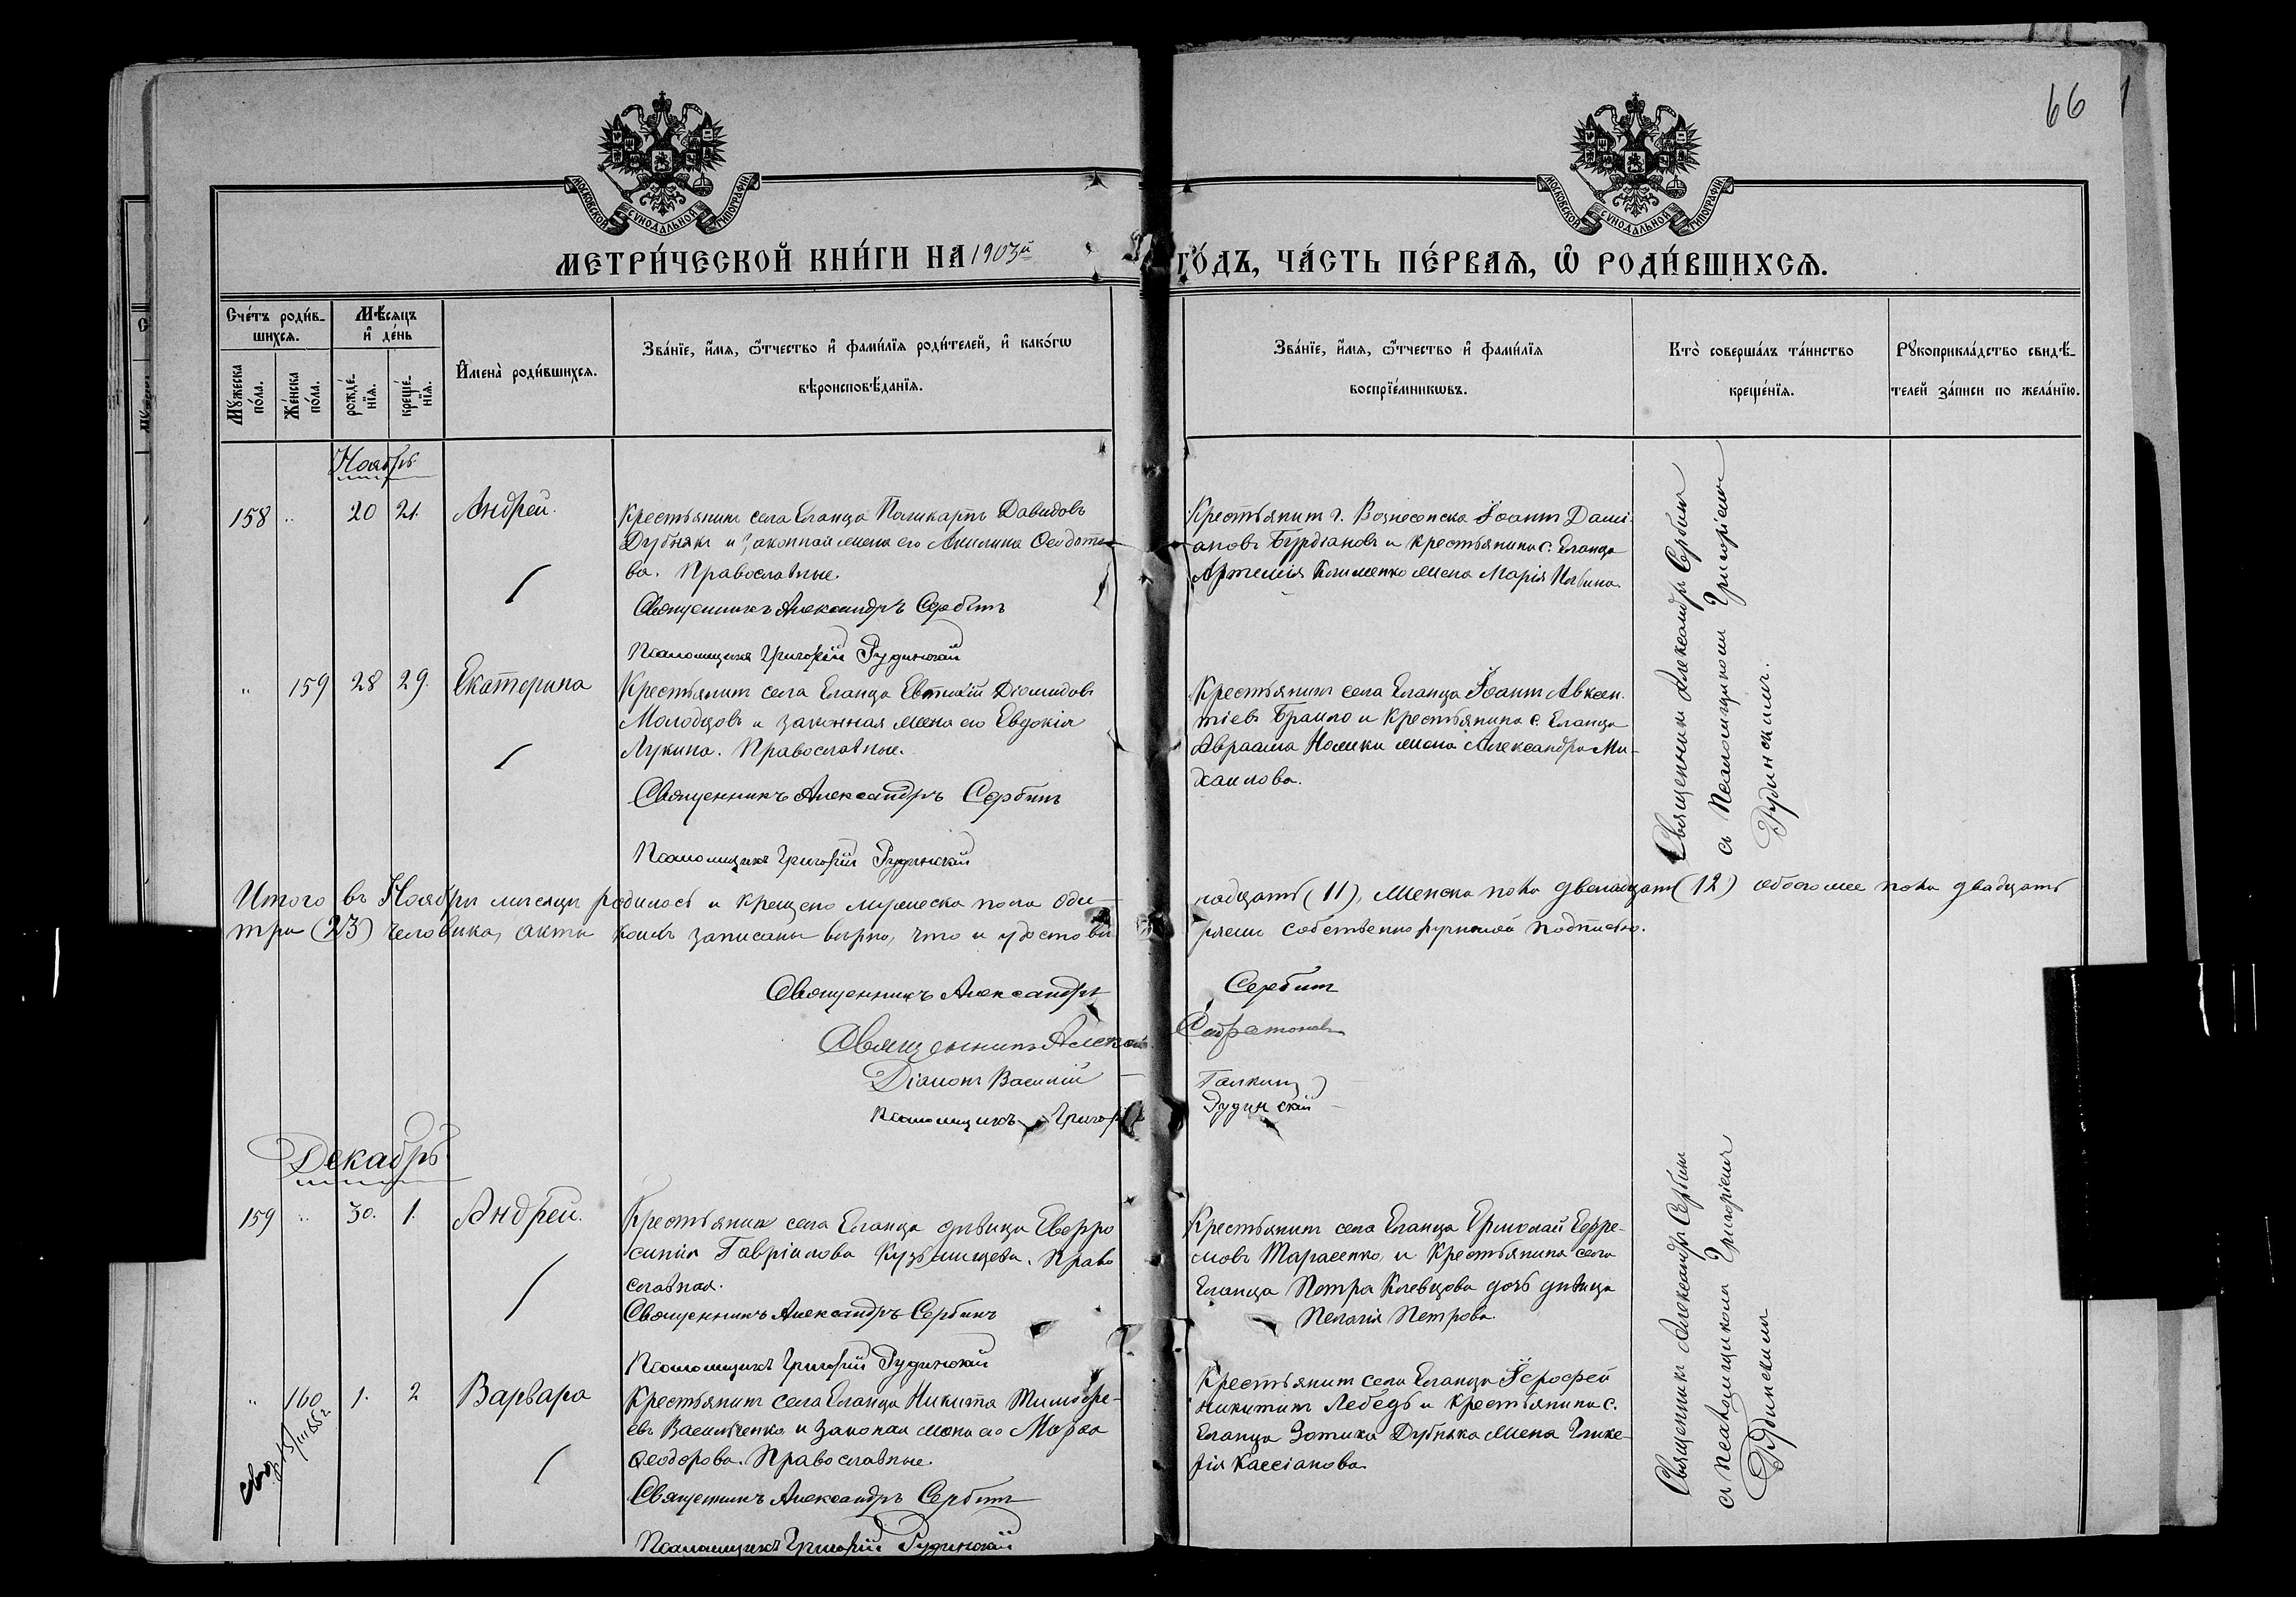 66
МОСКОВСКОЙ СѴНОДАЛЬНОЙ ТИПОГРАФІИ
МОСКОВСКОЙ СѴНОДАЛЬНОЙ ТИПОГРАФІИ
МЕТРИ́ЧЕСКОЙ КНИ́ГИ НА 1903й ГО́ДЪ, ЧА́СТЬ ПЕ́РВАѦ, Ѡ҆ РОДИ́ВШИХСѦ.
Сче́тъ роди́в-
шихсѧ.
Мꙋжеска по́ла.
Же́нска по́ла.
Мѣ́сѧцъ
и҆ де́нь
рожде́-
нїѧ.
креще́-
нїѧ.
И҆мена̀ роди́вшихсѧ.
Зва́нїе, и҆́мѧ, ѻ҆́тчество и҆ фами́лїѧ роди́телей, и҆ како́гѡ
вѣроисповѣ́данїѧ.
Зва́нїе, и҆́мѧ, ѻ҆́тчество и҆ фами́лїѧ
воспрїе́мникѡвъ.
Кто̀ соверша́лъ та́инство
креще́нїѧ.
Рꙋкоприкла́дство свидѣ́-
телей за́писи по жела́нїю.
Ноябрь
158 " 20 21. Андрей.
Крестьянинъ села Еланца Поликарпъ Давидовъ
Дубнякъ и законная жена его Акилина Ѳеодото-
ва. Православные.
Священникъ Александръ Сербинъ
Псаломщикъ Григорій Рудинскій
Крестьянинъ г. Вознесенска Іоаннъ Дамі-
ановъ Бурдіановъ и крестьянина с. Еланца
Артемія Клименко жена Марія
Священникъ Александръ Сербинъ
съ Псаломщикомъ Григоріемъ
Рудинскимъ.
" 159 28 29. Екатерина
Крестьянинъ села Еланца Евтихій Діомидовъ
Молодцовъ и законная жена его Евдокія
Лукина. Православные.
Священникъ Александръ Сербинъ
Псаломщикъ Григорій Рудинскій
Крестьянинъ села Еланца Іоаннъ Авксен-
тіевъ Браило и крестьянина с. Еланца
Авраама жена Александра Ми-
хаилова.
Итого въ Ноябрѣ мѣсяцѣ родилось и крещено мужеска пола оди-надцать (11), женска пола двенадцать (12) обоего пола двадцать
три (23) человѣка, акты коихъ записаны вѣрно, что и удостовѣряемъ собственноручной подписью.
Священникъ Александръ Сербинъ
Священникъ Алексѣй
Діаконъ Василій Галкинъ
Псаломщикъ Григорій Рудинскій
Декабрь
159 " 30. 1. Андрей.
Крестьянка села Еланца дѣвица Евфро
синія Гавріилова Кузьмищева. Право
славная.
Священникъ Александръ Сербинъ
Псаломщикъ Григорій Рудинскій
Крестьянинъ села Еланца Ермолай Ефре-
мовъ Тарасенко, и крестьянина села
Еланца Петра Клевцова дочь дѣвица
Пелагія Петрова.
Священникъ Александръ Сербинъ
съ псаломщикомъ Григоріемъ
Рудинскимъ
" 160 1. 2 Варвара
Крестьянинъ села Еланца Никита Тимофе-
евъ Васильченко и законая жена его Марѳа
Ѳеодорова. Православные.
Священникъ Александръ Сербинъ
Псаломщикъ Григорій Рудинскій
Крестьянинъ села Еланца Іероѳей
Никитинъ Лебедь и крестьянина с.
Еланца Зотика Дубняка жена Глике-
рія Кассіанова.